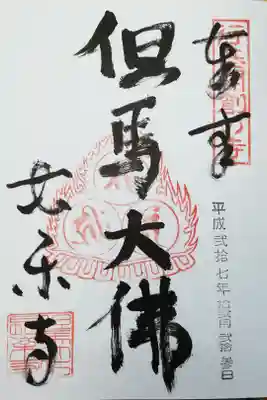 奉拝
平成弐拾七年拾弐月弐拾参日
但馬大佛
長楽寺